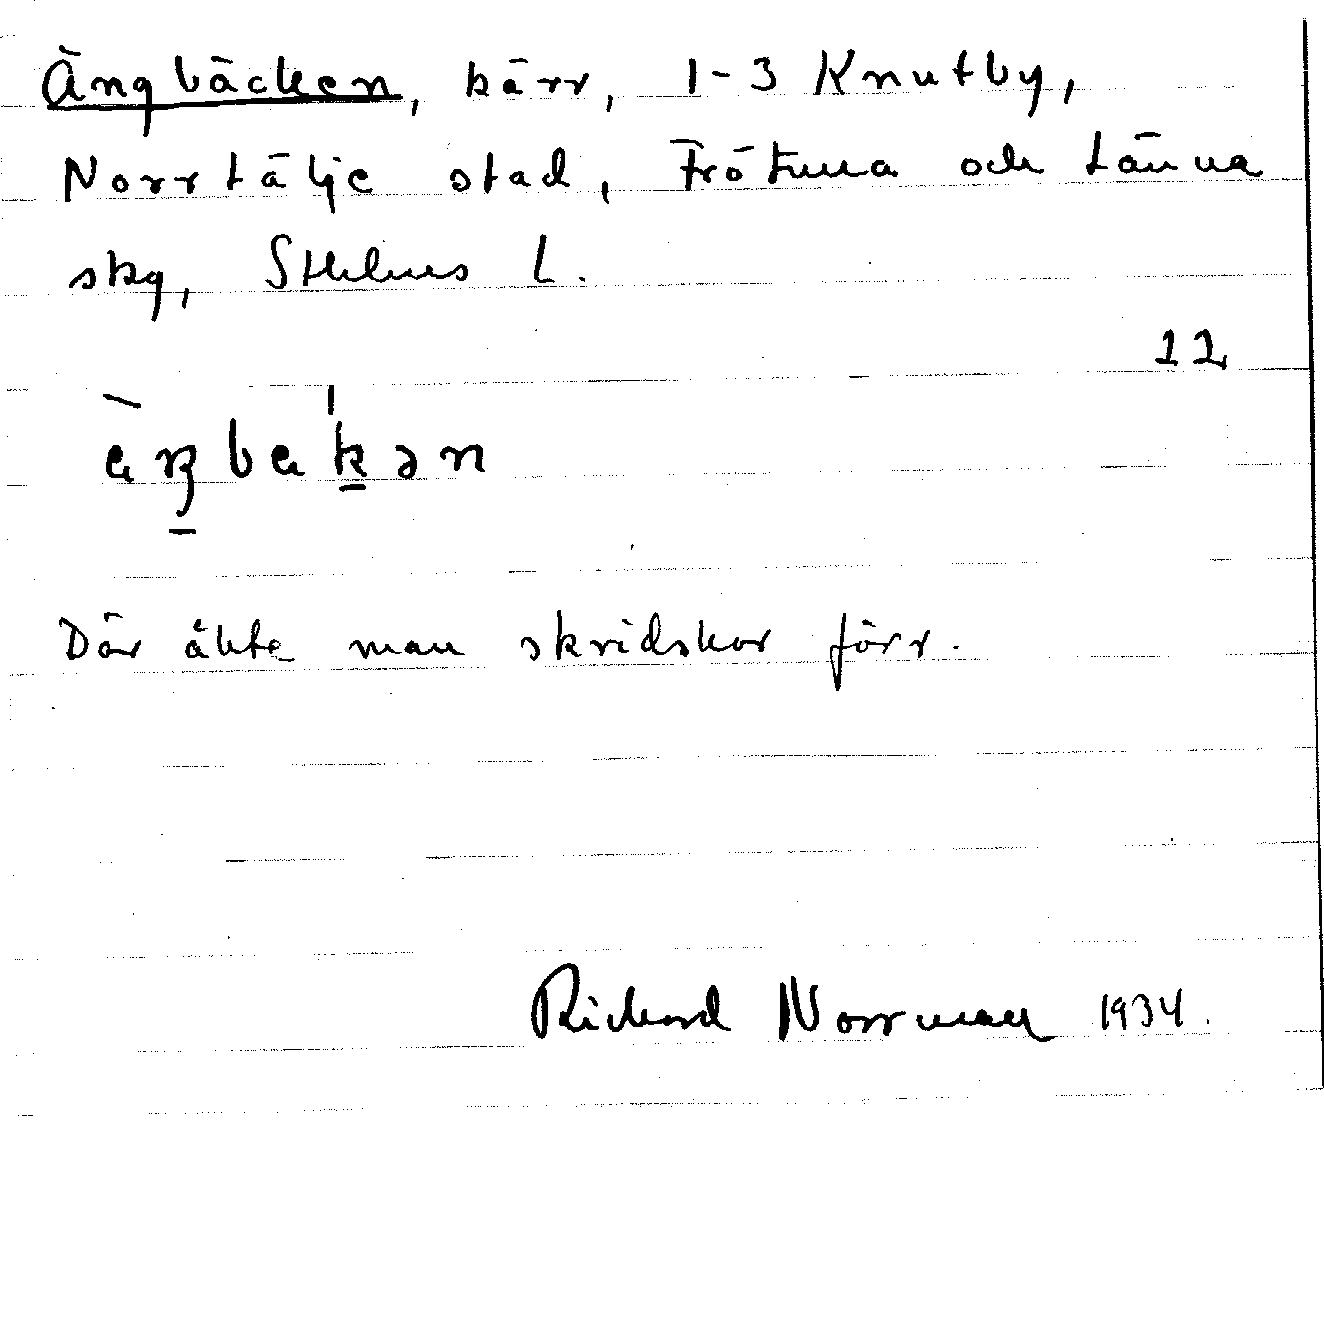 Ängbäcken, kärr, 1-3 Knutby,
Norrtälje stad, Frötuna och Länna
skg, Sthlms L.
12
Där åkte man skridskor förr.
Richard Norrman 1934.